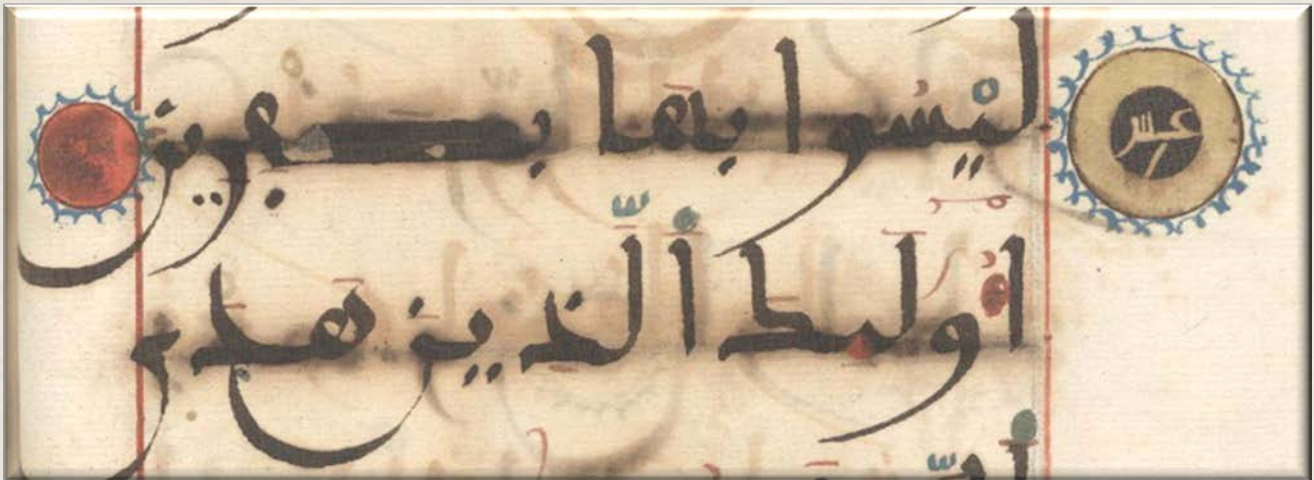 عشر
ليسوا بها بكفرين
اولىك الذين هدى